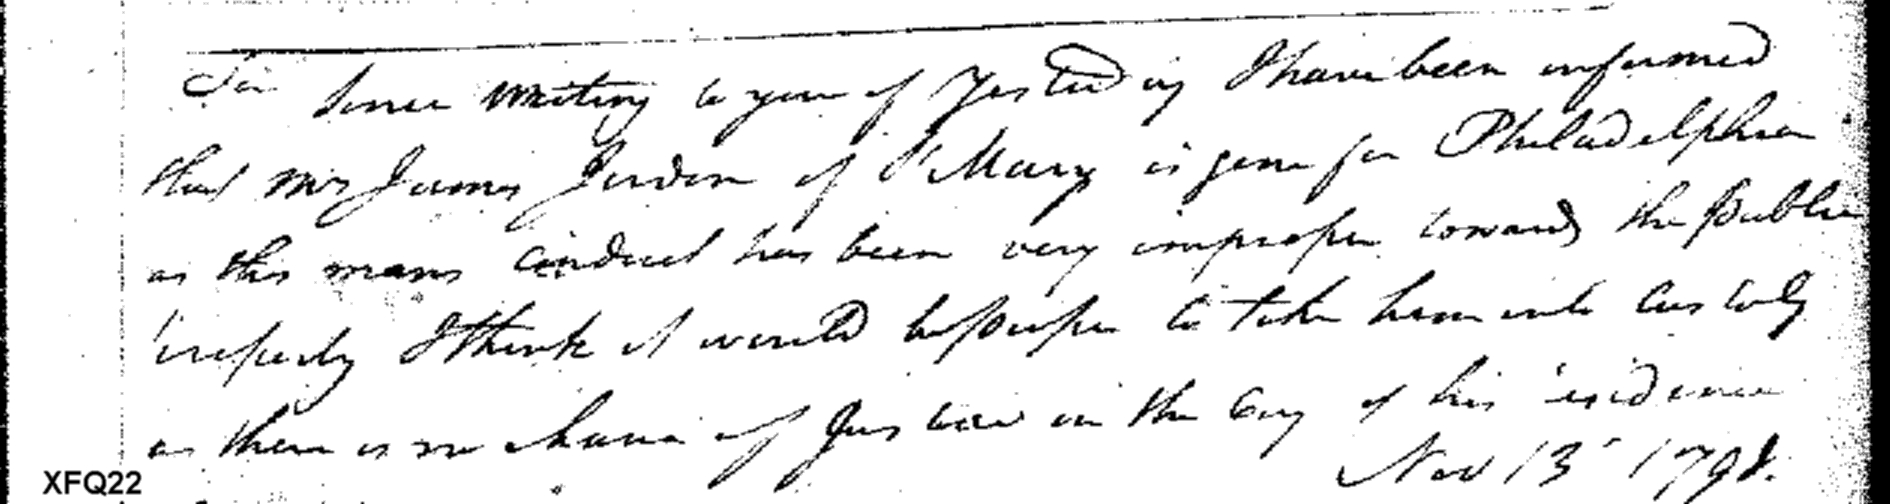 Sir Since writing to you of Yesterday I have been informed
that Mr James Jordon of St Mary is gone for Philadelphia
as this mans Conduct has been very improper towards the publie
property I think it would be proper to take him into Custody
as there is no chance of Justice in the Cuy of his residence
Nov 13 1798.
XFQ22